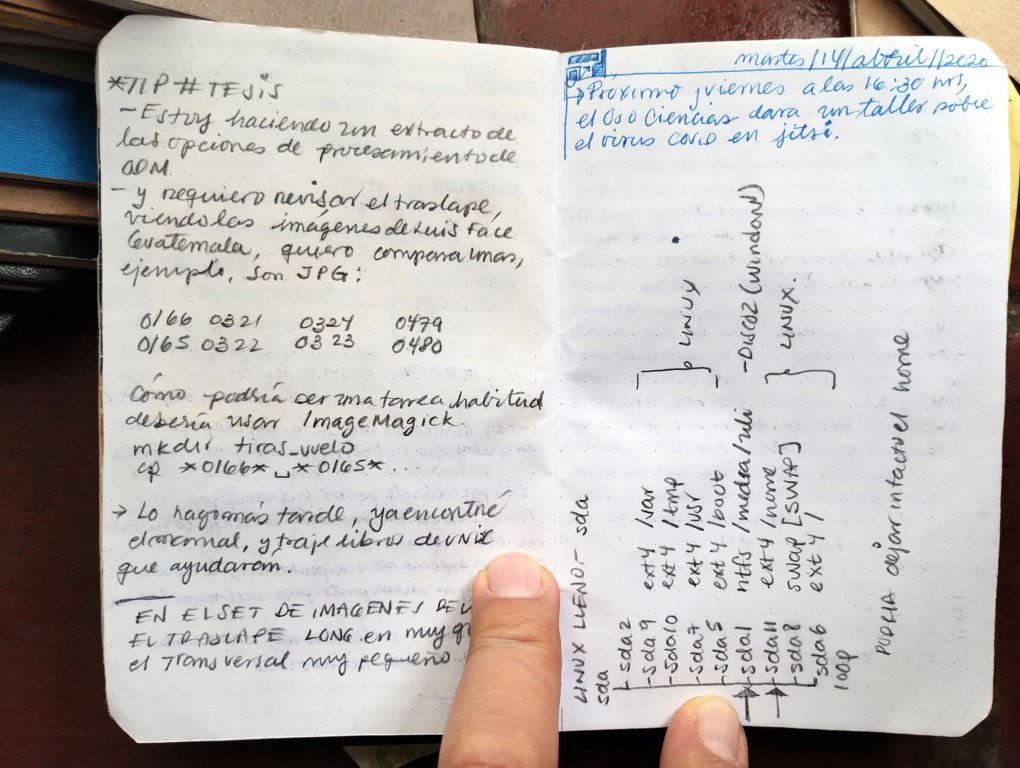 *TIP # TESIS
- Estoy haciendo un extracto de
las opciones de procesamiento de
ODM.
- y requiero revisar el traslape,
viendo las imágenes de Luis Face
Guatemala, quiero comparar unas,
ejemplo. Son JPG:
0166 0321 0324 0479
0165 0322 0323 0480
Cómo podría ser una tarea habitual
debería usar ImageMagick.
mkdir tiras_vuelo
cp *0166* ␣ *0165*.
→ Lo hago más tarde, ya encontré
el normal, y traje libros de UNIX
que ayudarán.
EN EL SET DE IMAGENES
EL TRASLAPE LONG en muy
el Transversal muy pequeño
martes/14/abril//2020
→ Próximo viernes a las 16:30 hrs,
el Oso Ciencias dara un taller sobre
el virus covid en jitsi.
LINUX LLENO - sda
sda
- sda2
- sda9 ext4 /var
- sda10 ext4 /tmp
- sda7 ext4 /usr
- sda5 ext4 /boot
} LINUX
→ - sda1 ntfs /media/ - DISCO2
→ - sda11 ext4 /home
- sda8 swap [SWAP]
sda6 ext4 /
} LINUX.
loop
PODRIA dejar intacto el home